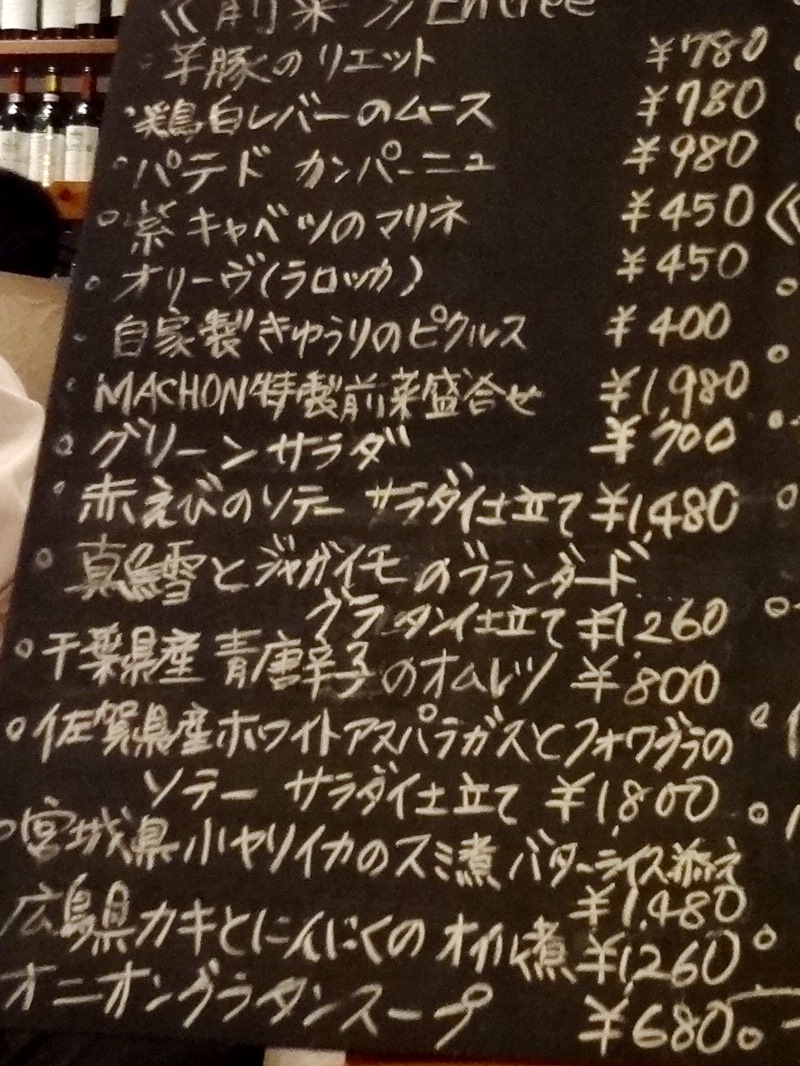 《前菜》Entrée
・羊豚のリエット ¥780
・鶏白レバーのムース ¥780
・パテド カンパーニュ ¥980
・紫キャベツのマリネ ¥450
・オリーヴ(ラロッカ) ¥450
・自家製きゅうりのピクルス ¥400
・MACHON特製前菜盛合せ ¥1,980
・グリーンサラダ ¥700
・赤えびのソテー サラダ仕立て ¥1,480
・真鱈とジャガイモのブランダード
グラタン仕立て ¥1,260
・千葉県産 青唐辛子のオムレツ ¥800
・佐賀県産ホワイトアスパラガスとフォワグラの
ソテー サラダ仕立て ¥1,800
・宮城県小ヤリイカのスミ煮 バターライス添え
¥1,480
広島県カキとにんにくのオイル煮 ¥1,260
オニオングラタンスープ ¥680